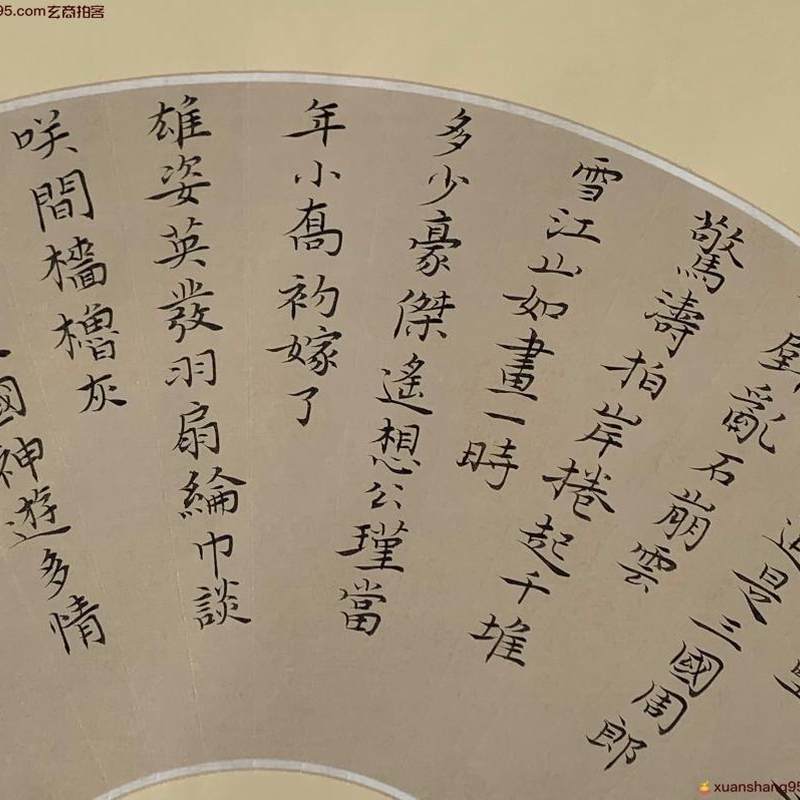 是三國周郎
亂石崩雲
驚濤拍岸捲起千堆
雪江山如畫一時
多少豪傑遙想公瑾當
年小喬初嫁了
雄姿英發羽扇綸巾談
咲間檣櫓灰
國神遊多情
95.com玄商拍客
xuanshang95